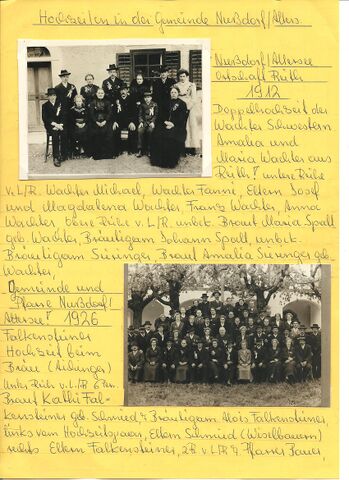 Hochzeiten in der Gemeinde Nußdorf/Atters.
Nußdorf/Attersee
Ortschaft Reith
1912
Doppelhochzeit der
Wachter Schwestern
Amalia und
Maria Wachter aus
Reith! untere Reihe
v.L/R. Wachter Michael, Wachter Fanni, Eltern Josef
und Magdalena Wachter, Franz Wachter, Anna
Wachter obere Reihe v.L/R. unbek. Braut Maria Spall
geb. Wachter, Bräutigam Johann Spall, unbek.
Bräutigam Surenger Braut Amalia Surenger geb.
Wachter,
Gemeinde und
Pfarre Nußdorf/
Attersee! 1926
Falkensteiner
Hochzeit beim
Bräu (Aidinger)
Unter Reih v.L/R 6 Pers.
Braut Kathi Fal-
kensteiner geb. Schmied, Bräutigam Alois Falkensteiner,
links vom Hochzeitspaar, Eltern Schmied (Wiselbauern)
rechts Eltern Falkensteiner, 2R v.L/R Pfarrer Bauer,